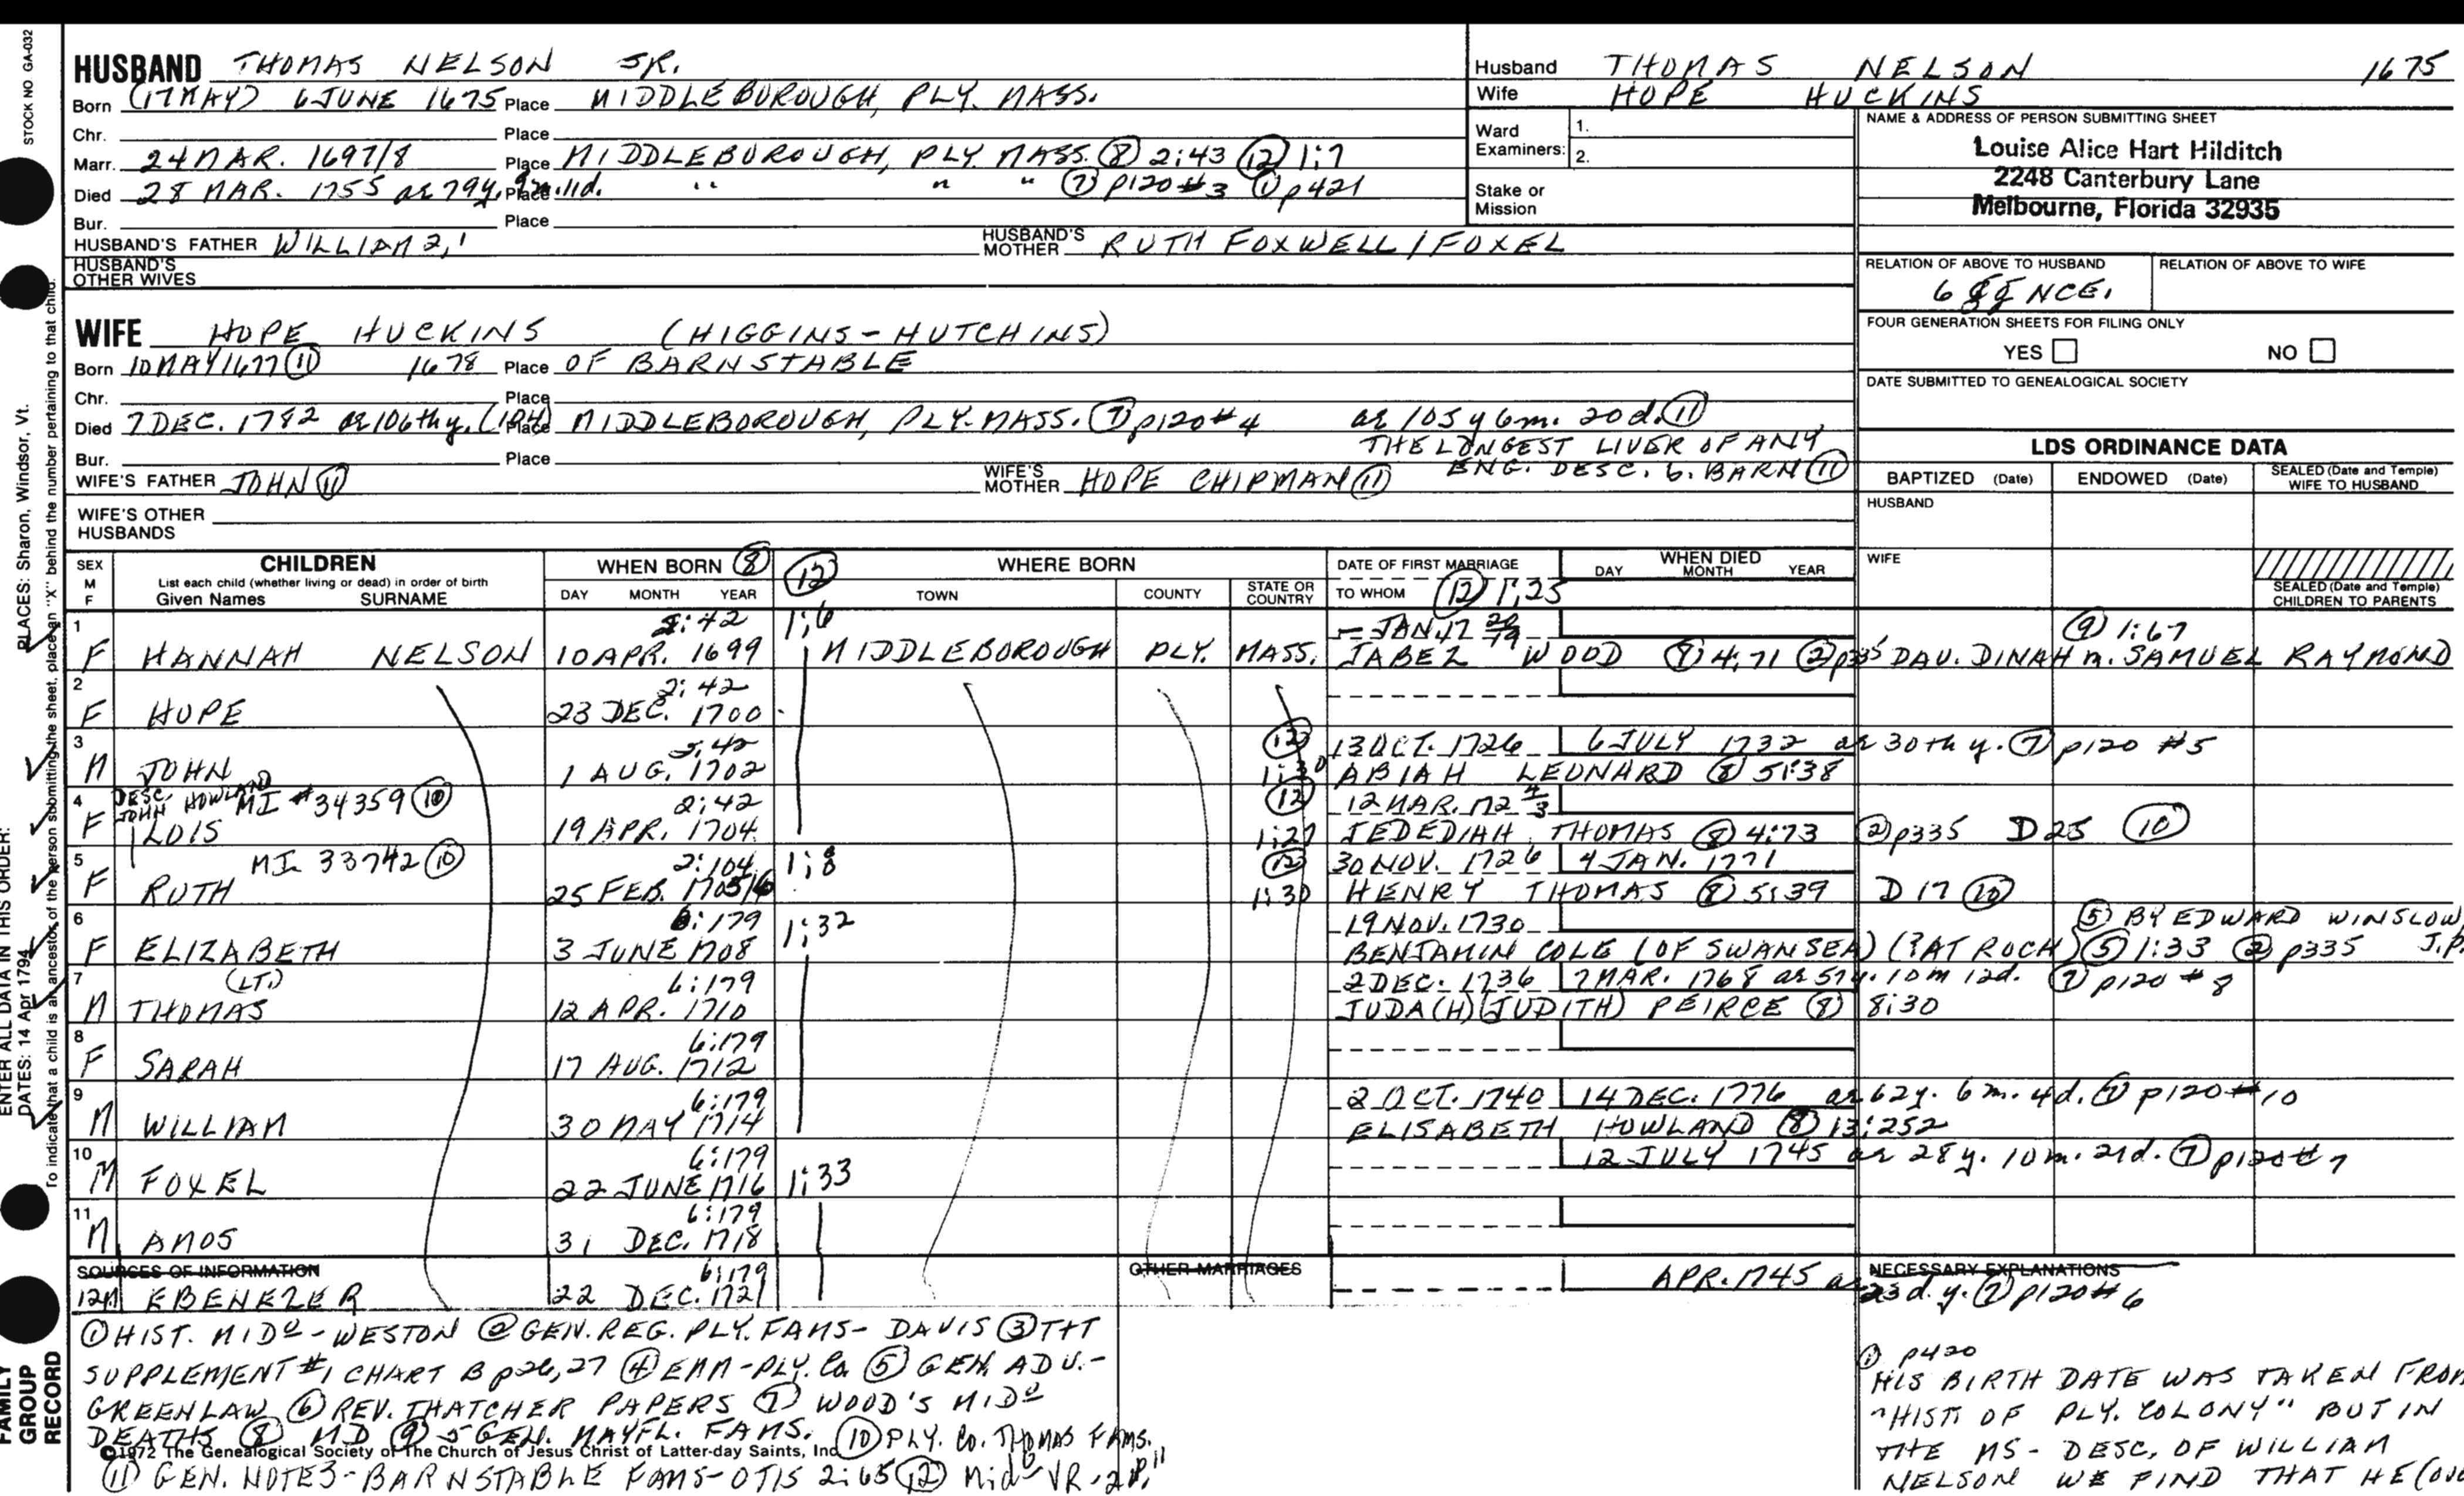 STOCK NO. GA-032
HUSBAND THOMAS NELSON SR.
Born (17 MAY) 6 JUNE 1675 Place MIDDLEBOROUGH, PLY. MASS.
Chr. Place
Marr. 24 MAR. 1697/8 Place MIDDLEBUROUGH, PLY MASS. (8) 2:43 (12) 1:7
Died 28 MAR. 1755 ae 79y. 9m. 11d. Place " " " (7) p120 #3 (1) p421
Bur. Place
HUSBAND'S FATHER WILLIAM 2,1 HUSBAND'S MOTHER RUTH FOXWELL / FOXEL
HUSBAND'S OTHER WIVES
WIFE HOPE HUCKINS (HIGGINS - HUTCHINS)
Born 10 MAY 1677 (11) 1678 Place OF BARNSTABLE
Chr. Place
Died 7 DEC. 1782 ae 106th y. (104) Place MIDDLEBOROUGH, PLY. MASS. (7) p120 #4 ae 105 y 6m. 20 d. (11)
THE LONGEST LIVER OF ANY
ENG. DESC. b. BARN (11)
Bur. Place
WIFE'S FATHER JOHN (11) WIFE'S MOTHER HOPE CHIPMAN (11)
WIFE'S OTHER HUSBANDS
Husband THOMAS NELSON 1675
Wife HOPE HUCKINS
Ward Examiners: 1.
2.
Stake or Mission
NAME & ADDRESS OF PERSON SUBMITTING SHEET
Louise Alice Hart Hilditch
2248 Canterbury Lane
Melbourne, Florida 32935
RELATION OF ABOVE TO HUSBAND RELATION OF ABOVE TO WIFE
NCE.
FOUR GENERATION SHEETS FOR FILING ONLY
YES NO
DATE SUBMITTED TO GENEALOGICAL SOCIETY
LDS ORDINANCE DATA
BAPTIZED (Date) ENDOWED (Date) SEALED (Date and Temple) WIFE TO HUSBAND
HUSBAND
WIFE
SEALED (Date and Temple) CHILDREN TO PARENTS
SEX M F CHILDREN List each child (whether living or dead) in order of birth Given Names SURNAME
WHEN BORN (8) DAY MONTH YEAR
(12) WHERE BORN TOWN COUNTY STATE OR COUNTRY
DATE OF FIRST MARRIAGE TO WHOM (12) 1:25
WHEN DIED DAY MONTH YEAR
1 2:42 1:6 (9) 1:67
F HANNAH NELSON 10 APR. 1699 MIDDLEBOROUGH PLY. MASS. JABEZ WOOD (8) 4:71 (2) p335 DAU. DINAH m. SAMUEL RAYMOND
2 2:42
F HOPE 23 DEC. 1700
3 2:42 (12) 13 OCT. 1726 6 JULY 1732 ae 30th y. (7) p120 #5
M JOHN 1 AUG. 1702 1:30 ABIAH LEONARD (8) 5:38
4 DESC. JOHN HOWLAND MI #34359 (10) 2:42 (12) 12 MAR. 172 3/4
F LOIS 19 APR. 1704 1:27 JEDEDIAH THOMAS (8) 4:73 (2) p335 D 25 (10)
5 MI 33742 (10) 2:104 1:8 (12) 30 NOV. 1726 4 JAN. 1771
F RUTH 25 FEB. 1705/6 1:30 HENRY THOMAS (8) 5:39 D 17 (10)
6 6:179 1:32 19 NOV. 1730 (5) BY EDWARD WINSLOW
F ELIZABETH 3 JUNE 1708 BENJAMIN COLE (OF SWANSEA) (?AT ROCH) (5) 1:33 (2) p335 J.P.
7 (LT.) 6:179 2 DEC. 1736 7 MAR. 1768 ae 57 y. 10 m 12d. (7) p120 #8
M THOMAS 12 APR. 1710 JUDA(H) (JUDITH) PEIRCE (8) 8:30
8 6:179
F SARAH 17 AUG. 1712
9 6:179 2 OCT. 1740 14 DEC. 1776 ae 62y. 6 m. 4d. (7) p120 #10
M WILLIAM 30 MAY 1714 ELISABETH HOWLAND (8) 13:252
10 6:179 12 JULY 1745 ae 28 y. 10 m. 21d. (7) p120 #7
M FOXEL 22 JUNE 1716 1:33
11 6:179
M AMOS 31 DEC. 1718
SOURCES OF INFORMATION 6:179 OTHER MARRIAGES NECESSARY EXPLANATIONS
12 M EBENEZER 22 DEC. 1721 APR. 1745 ae 23d. y. (7) p120 #6
(1) HIST. MIDO - WESTON (2) GEN. REG. PLY. FAMS - DAVIS (3) THT
SUPPLEMENT #1 CHART B p26, 27 (4) EAM - PLY. Co. (5) GEN. ADV. -
GREENLAW (6) REV. THATCHER PAPERS (7) WOOD'S MIDO
DEATHS (8) MD (9) 5 GEN. MAYFL. FAMS. (10) PLY. Co. THOMAS FAMS.
©1972 The Genealogical Society of The Church of Jesus Christ of Latter-day Saints, Inc
(11) GEN. NOTES - BARNSTABLE FAMS - OTIS 2:65 (12) Mido VR
(1) p420
HIS BIRTH DATE WAS TAKEN FROM
"HIST. OF PLY. COLONY" BUT IN
THE MS - DESC. OF WILLIAM
NELSON WE FIND THAT HE
ENTER ALL DATA IN THIS ORDER:
DATES: 14 Apr 1794 PLACES: Sharon, Windsor, Vt.
To indicate that a child is an ancestor of the person submitting the sheet, place an "X" behind the number pertaining to that child.
FAMILY GROUP RECORD